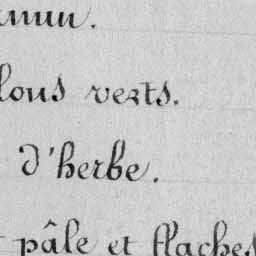 mun.
lons verts.
d'herbe.
pâle et flaches